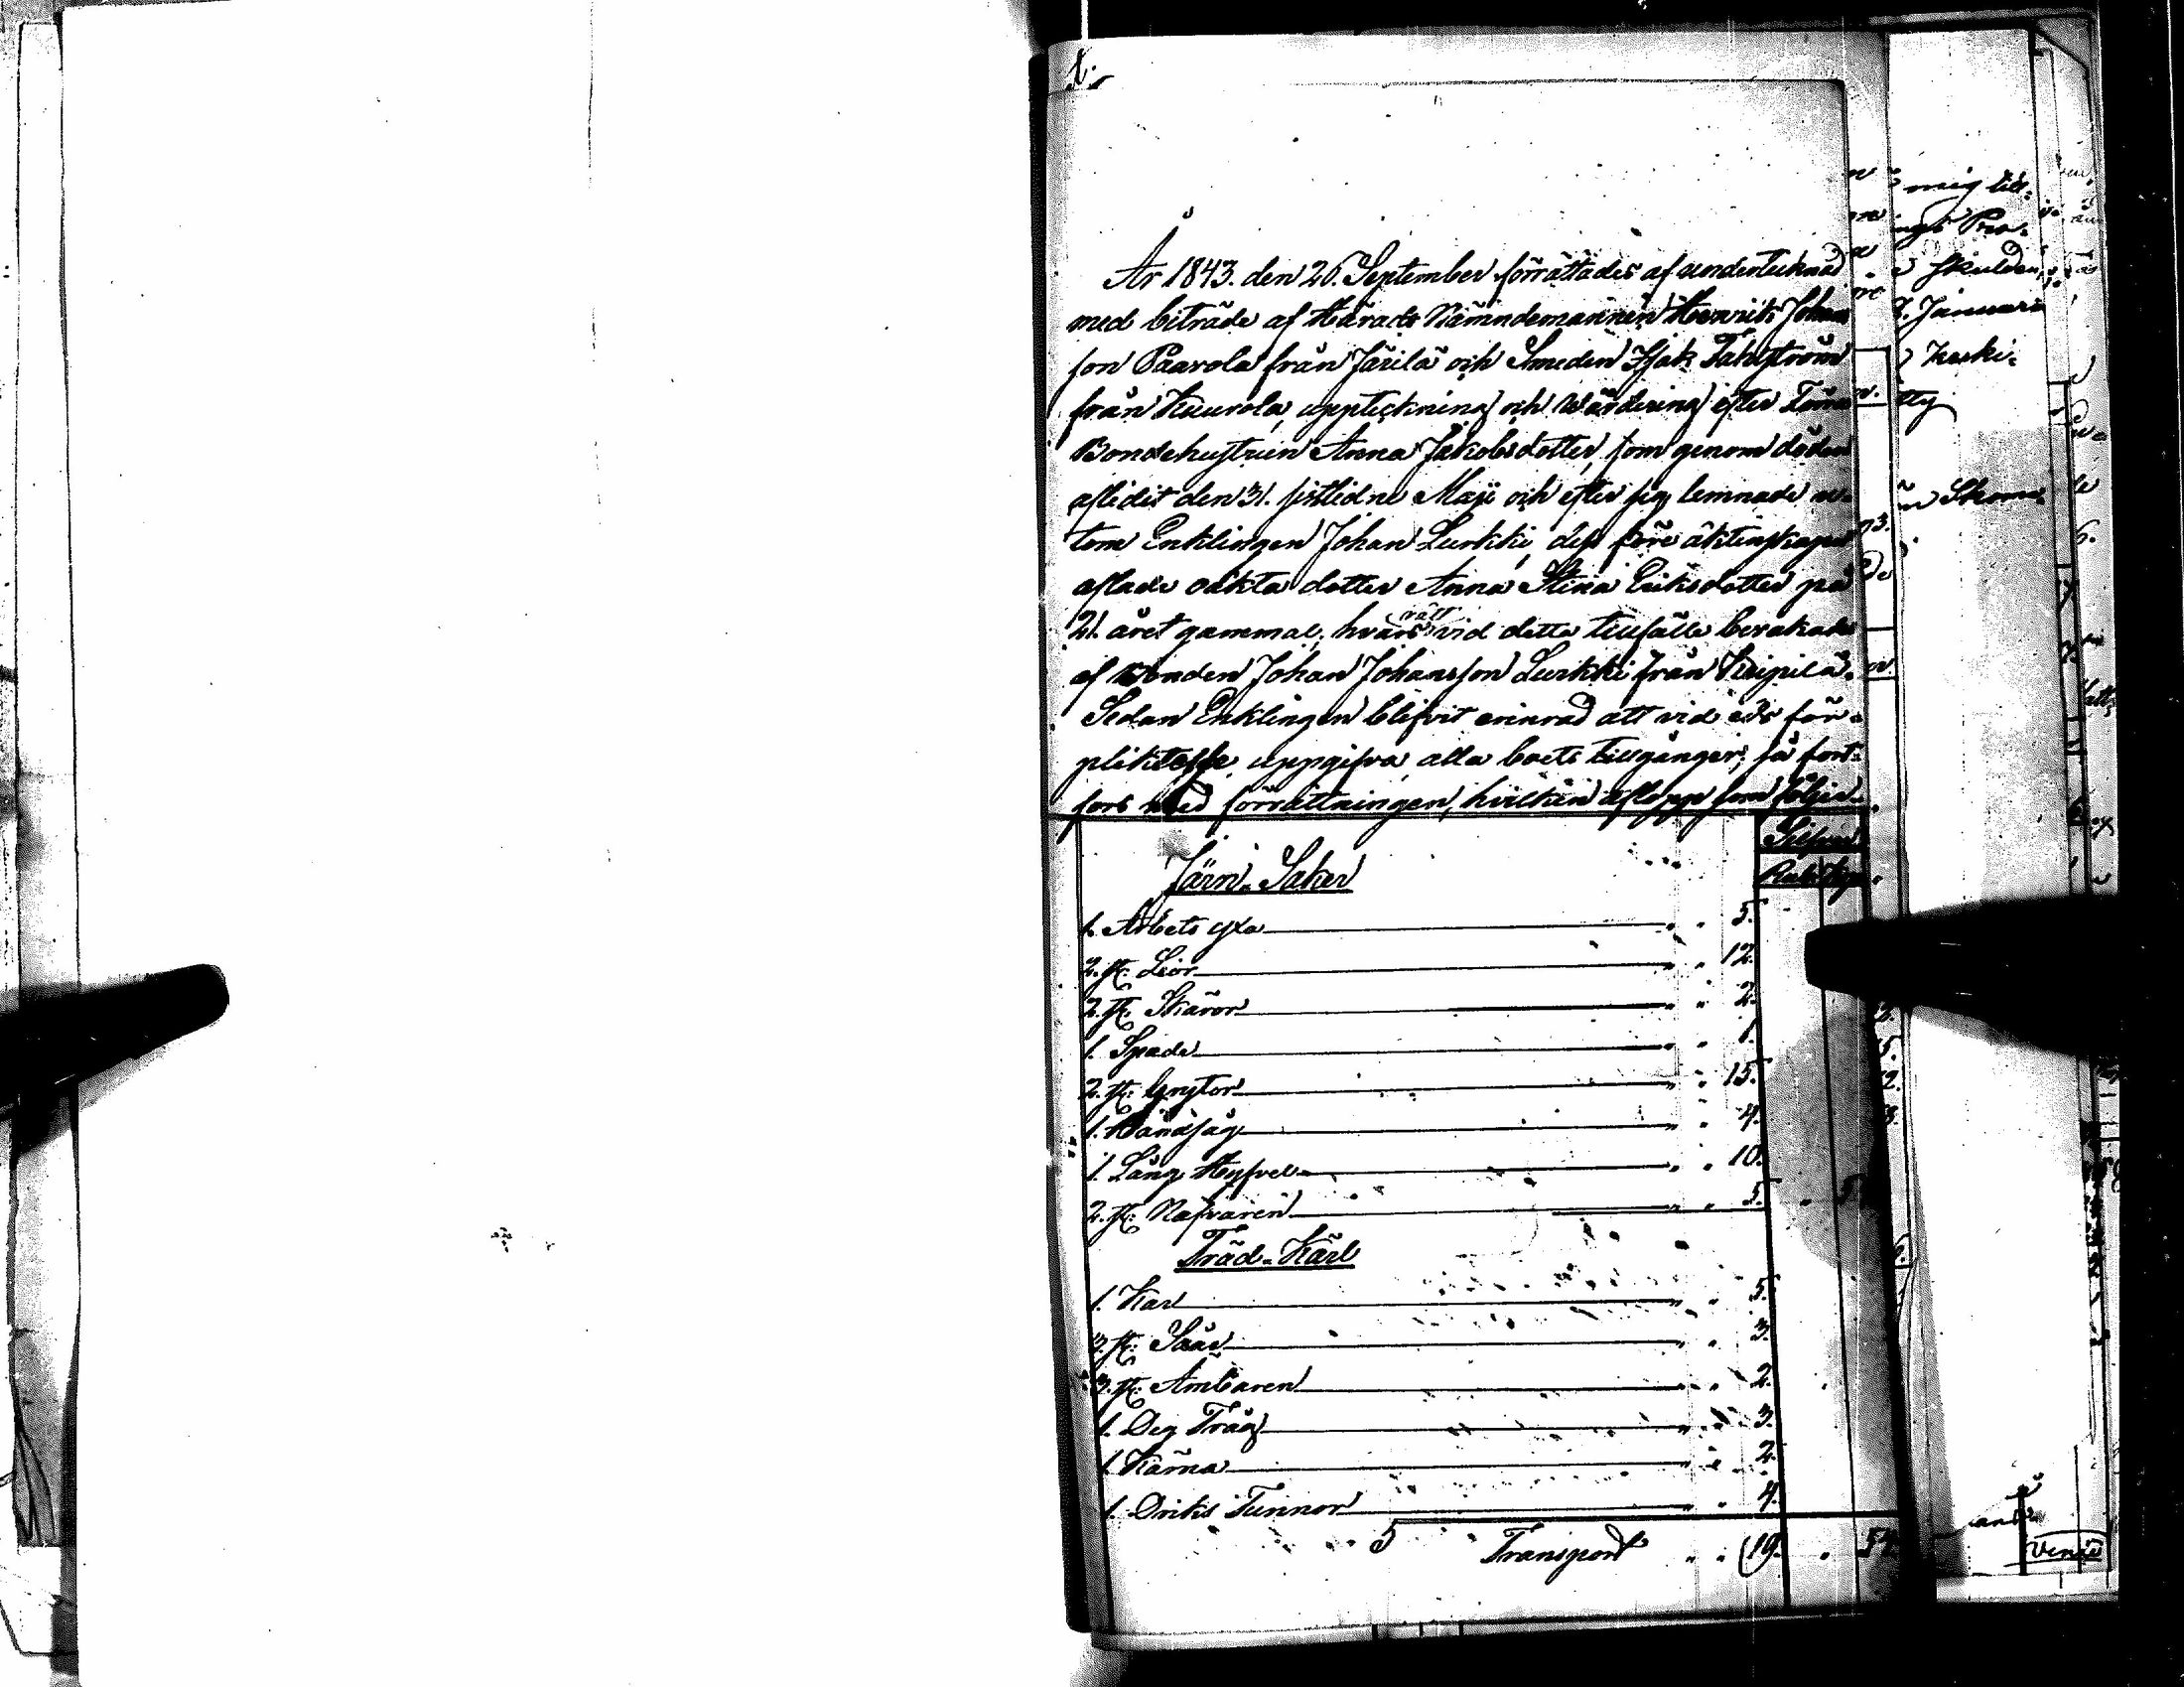 1.
År 1843. den 26. September förrättades af undertecknad
med biträde af Härads Nämndemannen Henrik Johans
son Paavola från Järilä och Smeden Isak Fahlström
från Kuurola, uppteckning och Wärdering efter
Bondehustrun Anna Jakobsdotter, som genom döden
aflidit den 31. sistledne Maji och efter sig lemnade u-
tom Enklingen Johan Lurkki, dess före äktenskapet
aflade oäkta dotter Anna Stina Eriksdotter på
21. året gammal, hvars rätt vid detta tillfälle bevakade
af Bonden Johan Johansson Lurkki från Keipilä.
Sedan Enklingen blifvit erinrad att vid eds för-
pliktelse uppgifva alla boets tillgångar, så fort-
fors med förrättningen, hvilken aflopp som följer.
Silfver
Järn-Saker Rub. Kop.
1. Arbets yxa " " 5.
2. st. Liar " " 12.
2. st. Skäror " " 2.
1. Spade " " 1.
2. st. Grytor " " 15.
1. Handsåg " " 4.
1. Lång Hyfvel " " 10.
2. st. Nafvaren " " 5.
Träd-Kärl
1. Kar " " 5.
3. st. Såår " " 3.
3. st. Ambaren " " 2.
1. Deg Tråg " " 3.
1. Kärna " " 2.
1. Driks Tunnor " " 4.
5 Transport " " 19. " 54.
mig till-
Pro-
skulden
7. Januari
Keski-